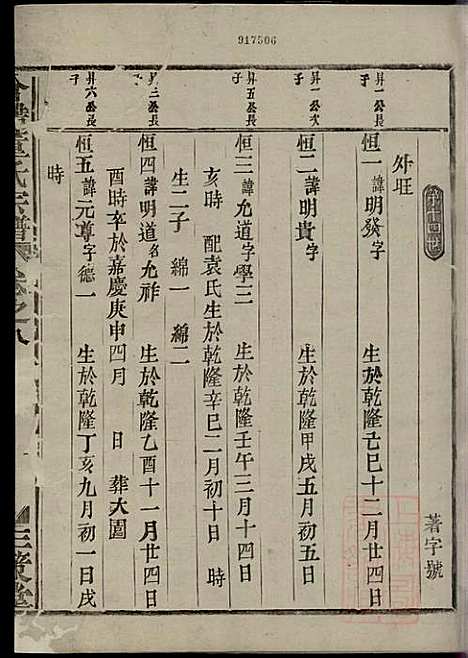 917506
外旺
著字號
昇一公長子
恒一諱明發字 生於乾隆己巳十二月廿四日
昇一公次子
恒二諱明貴字 生於乾隆甲戌五月初五日
昇五公長子
恒三諱允道字學三 生於乾隆壬午三月十四日
亥時 配袁氏生於乾隆辛巳二月初十日 時
生二子 綿一 綿二
昇三公長子
恒四諱明道名允祚 生於乾隆乙酉十一月廿四日
酉時卒於嘉慶庚申四月 日 葬大園
昇六公長子
恒五諱元尊字德一 生於乾隆丁亥九月初一日戌
時
董氏宗譜
之八
三策堂